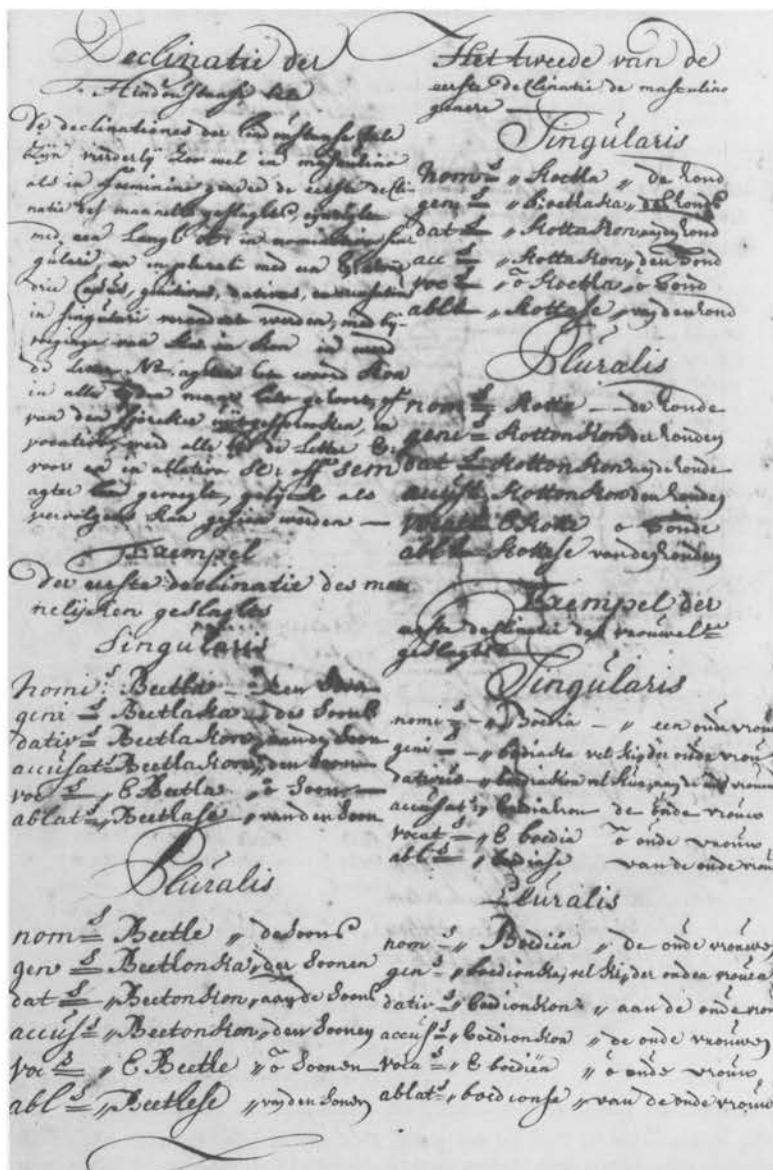 Declinatie der
Hindoustanse tale
De declinationes der hindoustanse tale
zijn vierderlij zoo wel in masculino
als in foeminino genere de eerste decli-
natie des mannelt geslagts, eijndigte
med een Langh
gulari, en in plurali med een
drie Casus, genitivus, dativus, en accusativus
in singulari verandert werden, med bij-
voeginge van in werd
de Letter agter het woord
in alle maar
van den uijtgesprooken, in
vocativo, werd alle de Letter E
voor en in ablativo se: off sem
agter gevoegte, gelijck als
vervolgens kan gesien werden —
Exempel
der eerste declinatie des man
nelijcken geslagts
Singularis
nomi.s Beetla — een soon
geni s Beetlaka — des soons
dativ s Beetlakon, aan de soon
accusat s Beetlakon, den soon
voc s „ E Beetla „ o soon
ablat s „ Beetlase „ van den soon
Pluralis
nom s Beetle „ de soons
gen s Beetlonka, der soonen
dat s „ Beetonkon, aan de soons
accus s „ Beetonkon, den soonen
voc s „ E Beetle „ o soonen
abl s „ Beetlese „ van den sonen
Het tweede van de
eerste declinatie de masculino
genere
Singularis
nom s „ Koetta „ de hond
gen s „ Koettaka „ des honds
dat s „ Kottakon aan de hond
acc s „ Kottakon „ den hond
voc s „ o Koetta „ o hond
abl s „ Kottase „ van den hond
Pluralis
nom s Kotte — de honde
geni s Kottonkon der honden
dat s Kottonkon aan de honde
accus s Kottonkon den honden
vocat s E Kotte o honde
abl s Kottese van den honden
Exempel der
eerste declinatie des vrouwel
geslagts
Singularis
nomi s — „ Boedia — „ een oude vrouw
geni s — „ boediaka vel ki, der oude vrou
dativus „ boediakon vel aan de oude vrouw
accusat s „ boediakon de oude vrouw
vocat s „ E boedia o oude vrouw
abl s „ boediase van de oude vrouw
Pluralis
nom s „ Boediën „ de oude vrouwen
gen s „ boedionka, vel ki, der ouden vrouwen
dativ s „ boedionkon „ aan de oude vrou
accus s „ boedionkon „ de oude vrouwen
voca s „ E boediën „ o oude vrouw
ablat s „ boedionse „ van de oude vrouw